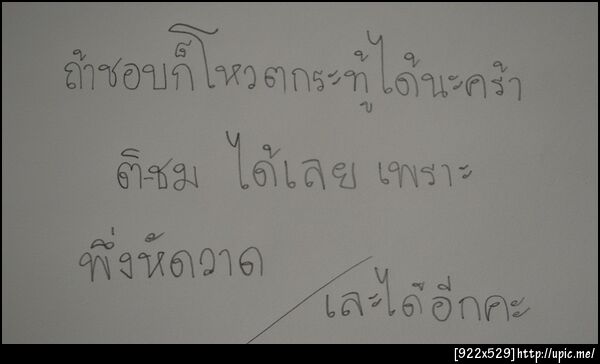 ถ้าชอบก็โหวตกระทู้ได้นะคร้า
ติชม ได้เลย เพราะ
พึ่งหัดวาด
เละได้อีกคะ
[922x529]http://upic.me/